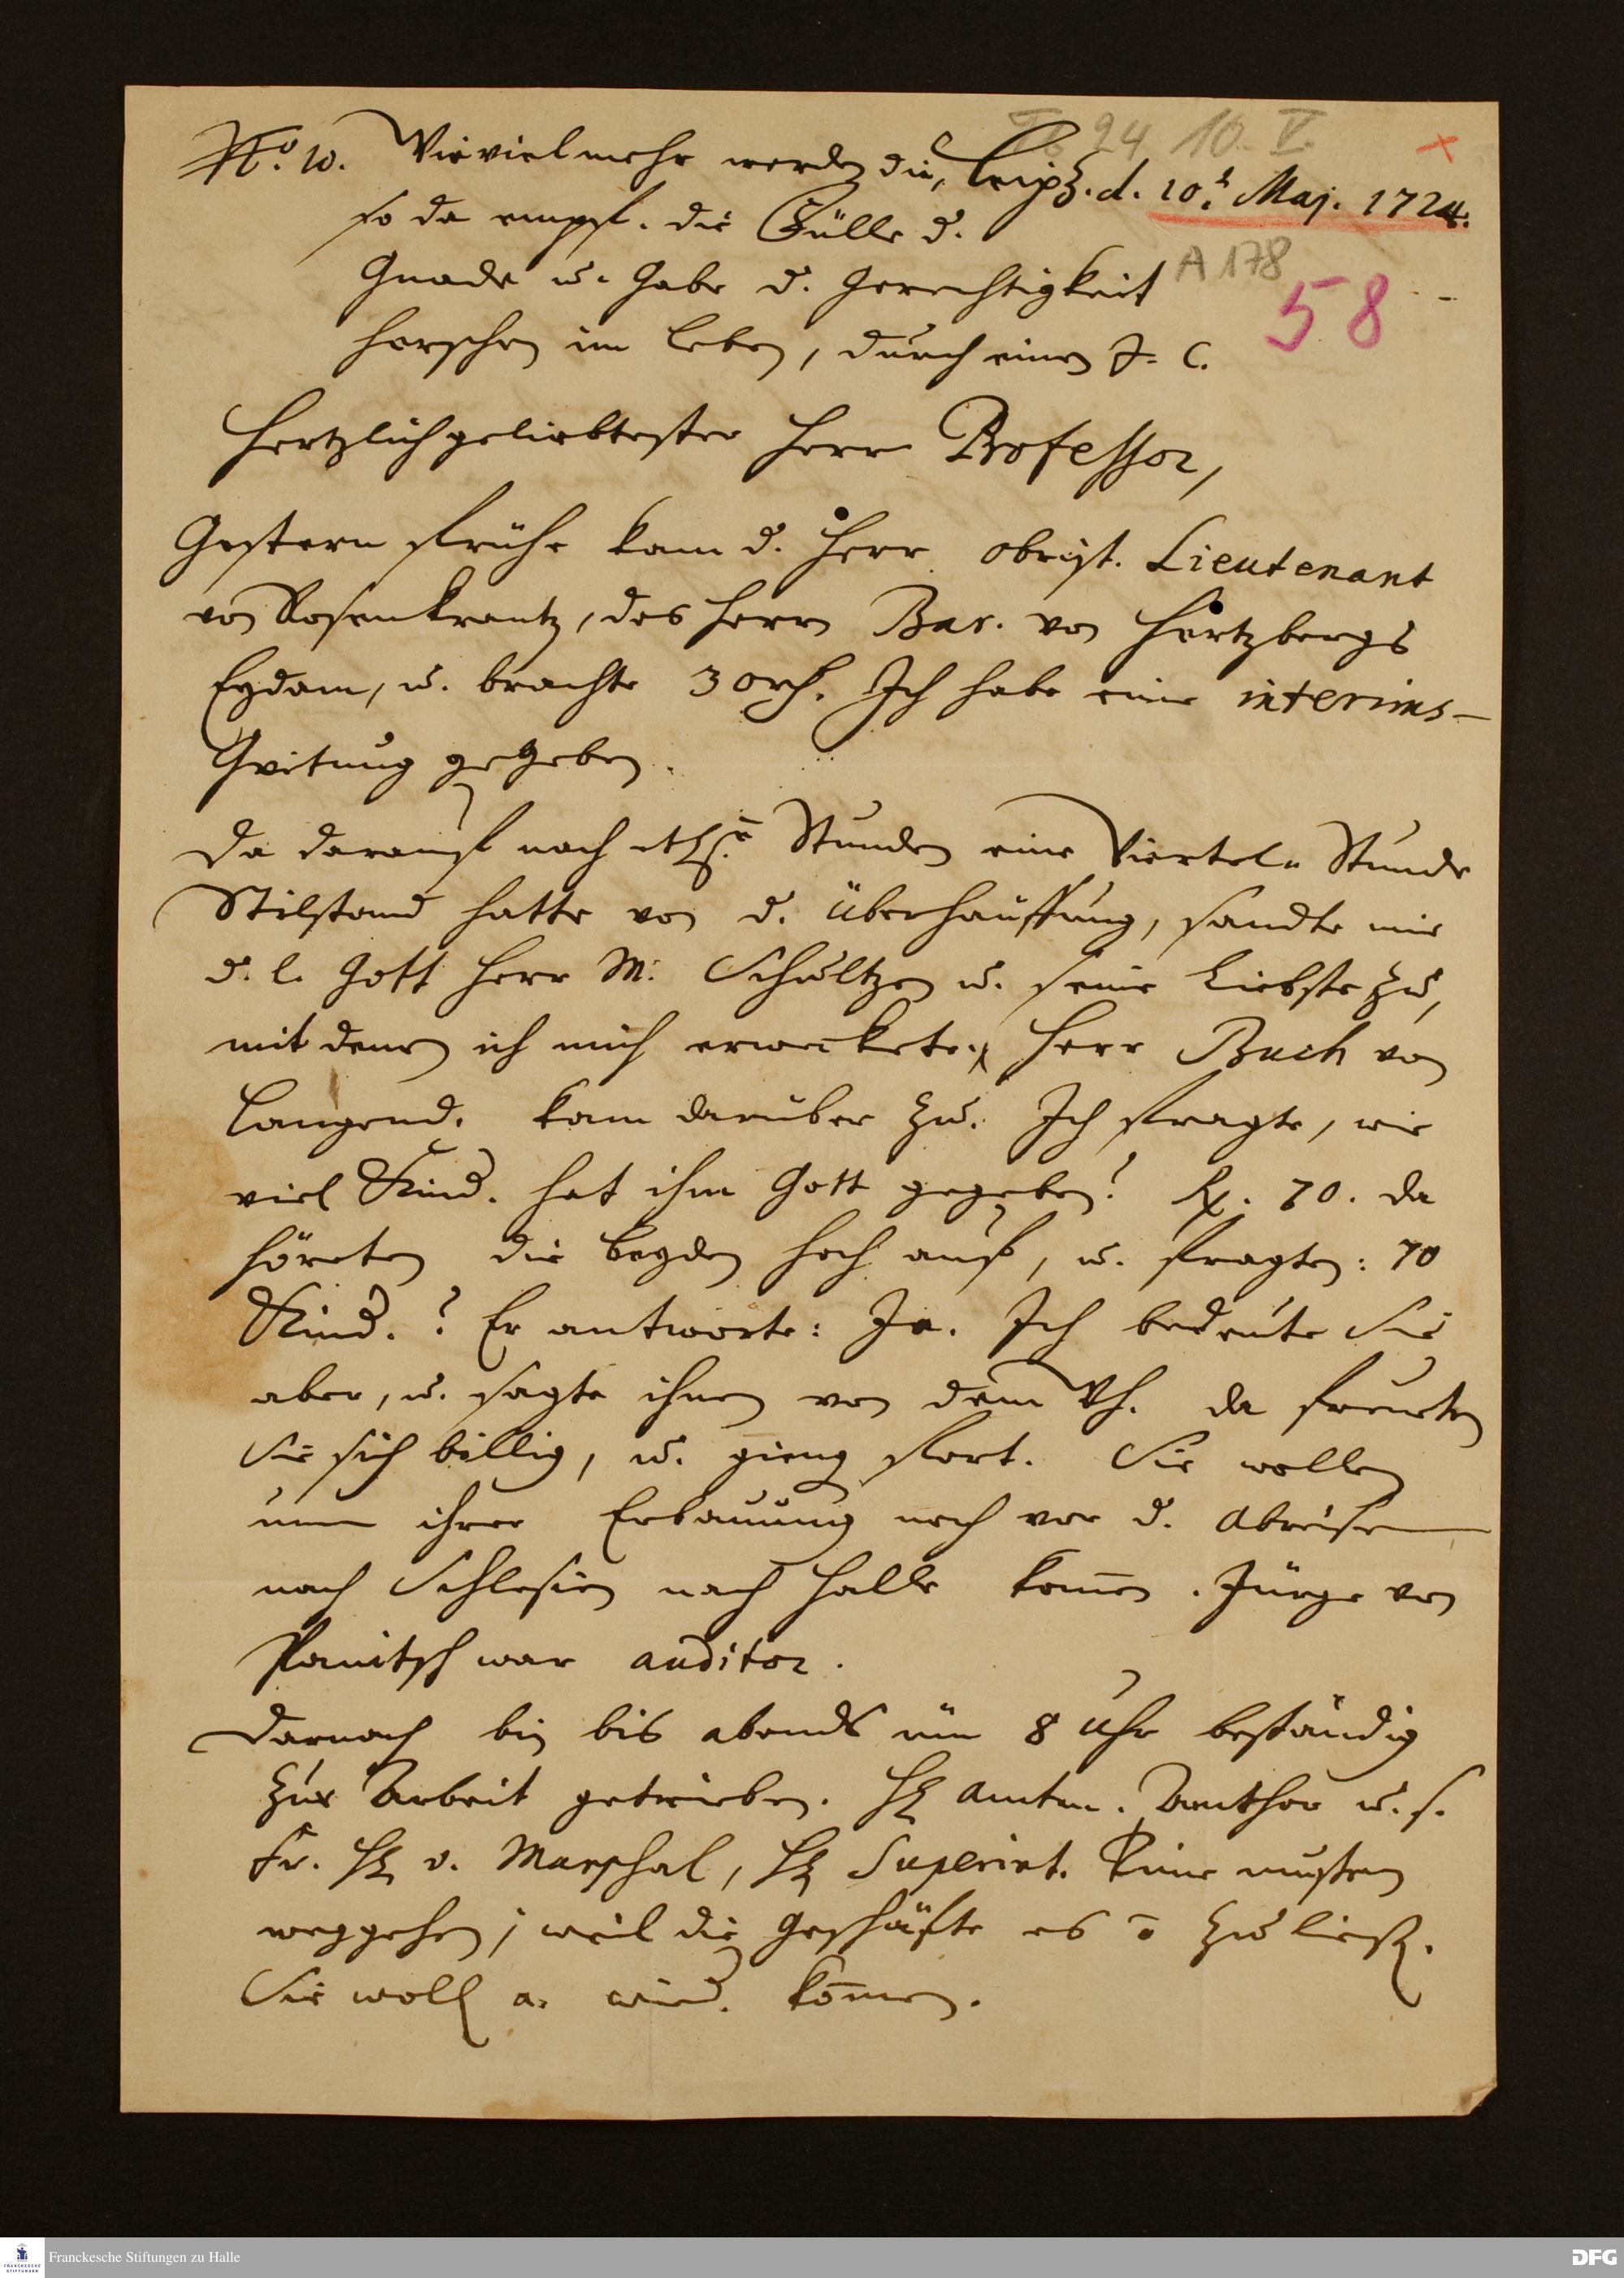 No. 10. Wievielmehr werden die, Leipz. d. 10t. Maj. 1724.
24 10. V.
so da empf. die Fülle d.
Gnade u. Gabe d. Gerechtigkeit
A 178
58
herschen im Leben, durch einen J. C.
Hertzlichgeliebtester Herr Professor,
Gestern frühe kam d. Herr obrist. Lieutenant
von Rosenkrantz, des Herrn Bar. von Hertzbergs
Eydam, u. brachte 30 rth. Ich habe eine interims-
Qvitung gegeben.
Da darauf nach Stunden eine Viertel-Stunde
Stilstand hatte von d. überhäuffung, sandte mir
d. l. Gott Herr M. Schultzen u. seine Liebste zu,
mit denen ich mich erweckete. Herr Buch von
Langend. kam darüber zu. Ich fragte, wie
viel Kind. hat ihm Gott gegeben? Rx. 70. da
höreten die beyden hoch auf, u. fragten: 70
Kind.? Er antworte: Ja. Ich bedeute Sie
aber, u. sagte ihnen von dem Wh. da freueten
Sie sich billig, u. gieng fort. Sie wollen
um ihrer Erbauung noch vor d. Abreise
nach Schlesien nach Halle komen. Jürge von
Panitsch war auditor.
Darnach bin bis abends üm 8 Uhr beständig
zur Arbeit getrieben. H. Amtm. u. s.
Fr. H. v. Marschal, H. Superint. musten
weggehen, weil die Geschäfte es o zu ließ.
Sie woll a. wied. komen.
Franckesche Stiftungen zu Halle
FRANCKESCHE
STIFTUNGEN
DFG